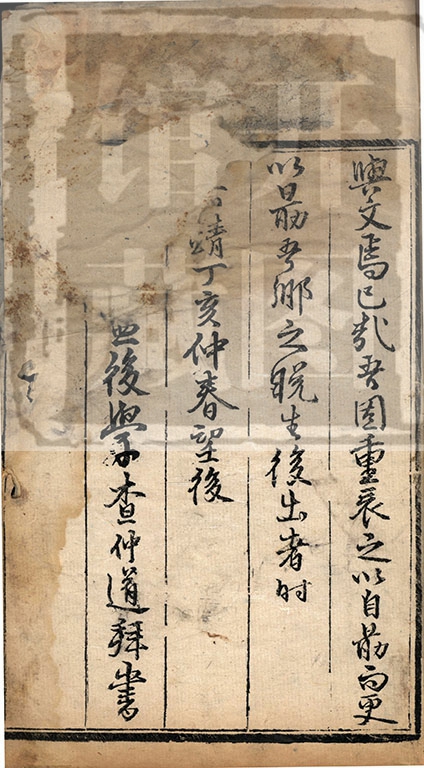 與文焉已哉吾固重表之以自勗而更
以勗吾鄉之晚生後出者時
靖丁亥仲春望後
後學查仲道拜書